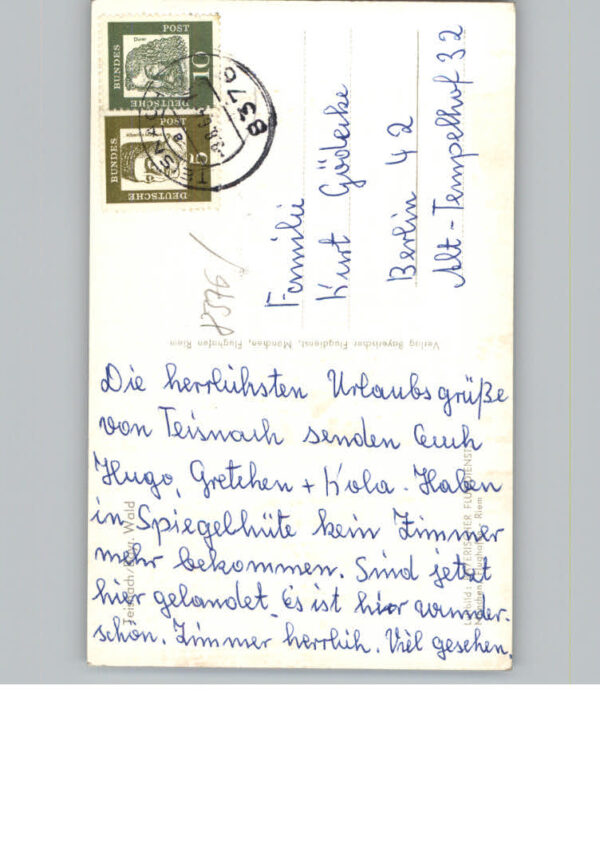 Die herrlichsten Urlaubsgrüße
von Teisnach senden Euch
Hugo, Gretchen + Kola. Haben
in Spiegelhüte kein Zimmer
mehr bekommen. Sind jetzt
hier gelandet. Es ist hier wunder-
schön. Zimmer herrlich. Viel gesehen.
Familie
Kurt Gödecke
Berlin 42
Alt-Tempelhof 32
Verlag Bayerischer Flugdienst, München, Flughafen Riem
Teisnach/Bayr. Wald
Luftbild: BAYERISCHER FLUGDIENST
München, Flughafen Riem
DEUTSCHE BUNDESPOST
10
DEUTSCHE BUNDESPOST
5
8376
TEISNACH
8376